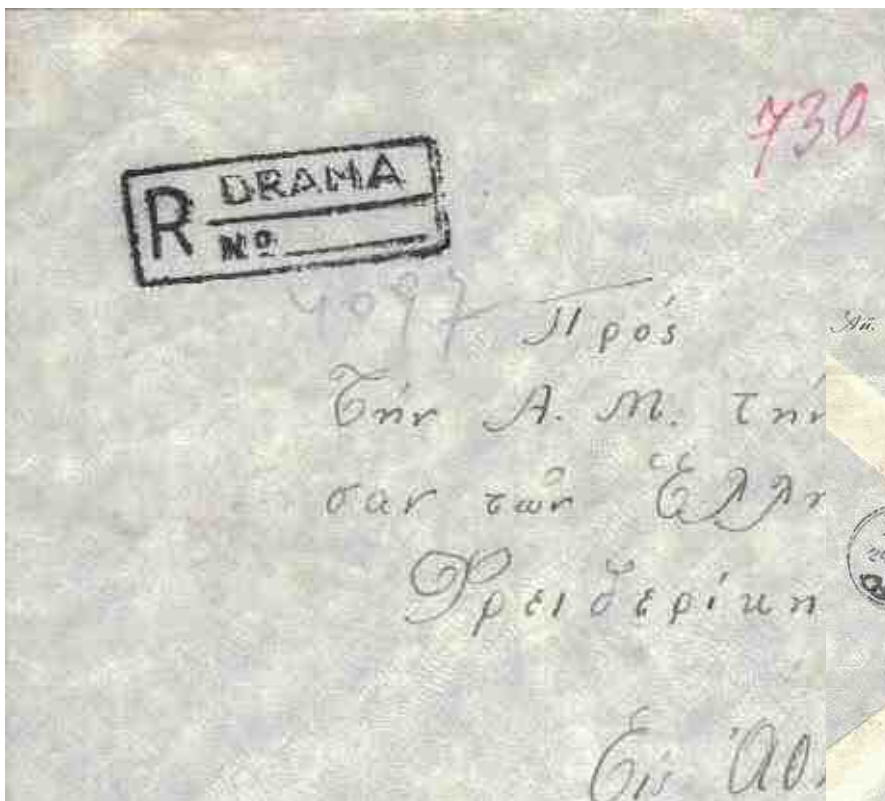 730
R DRAMA
Nº
4097
Πρός
Τήν Α. Μ. τήν
σαν τῶν Ἑλλη
Φρειδερίκη
Ἐν Ἀθ